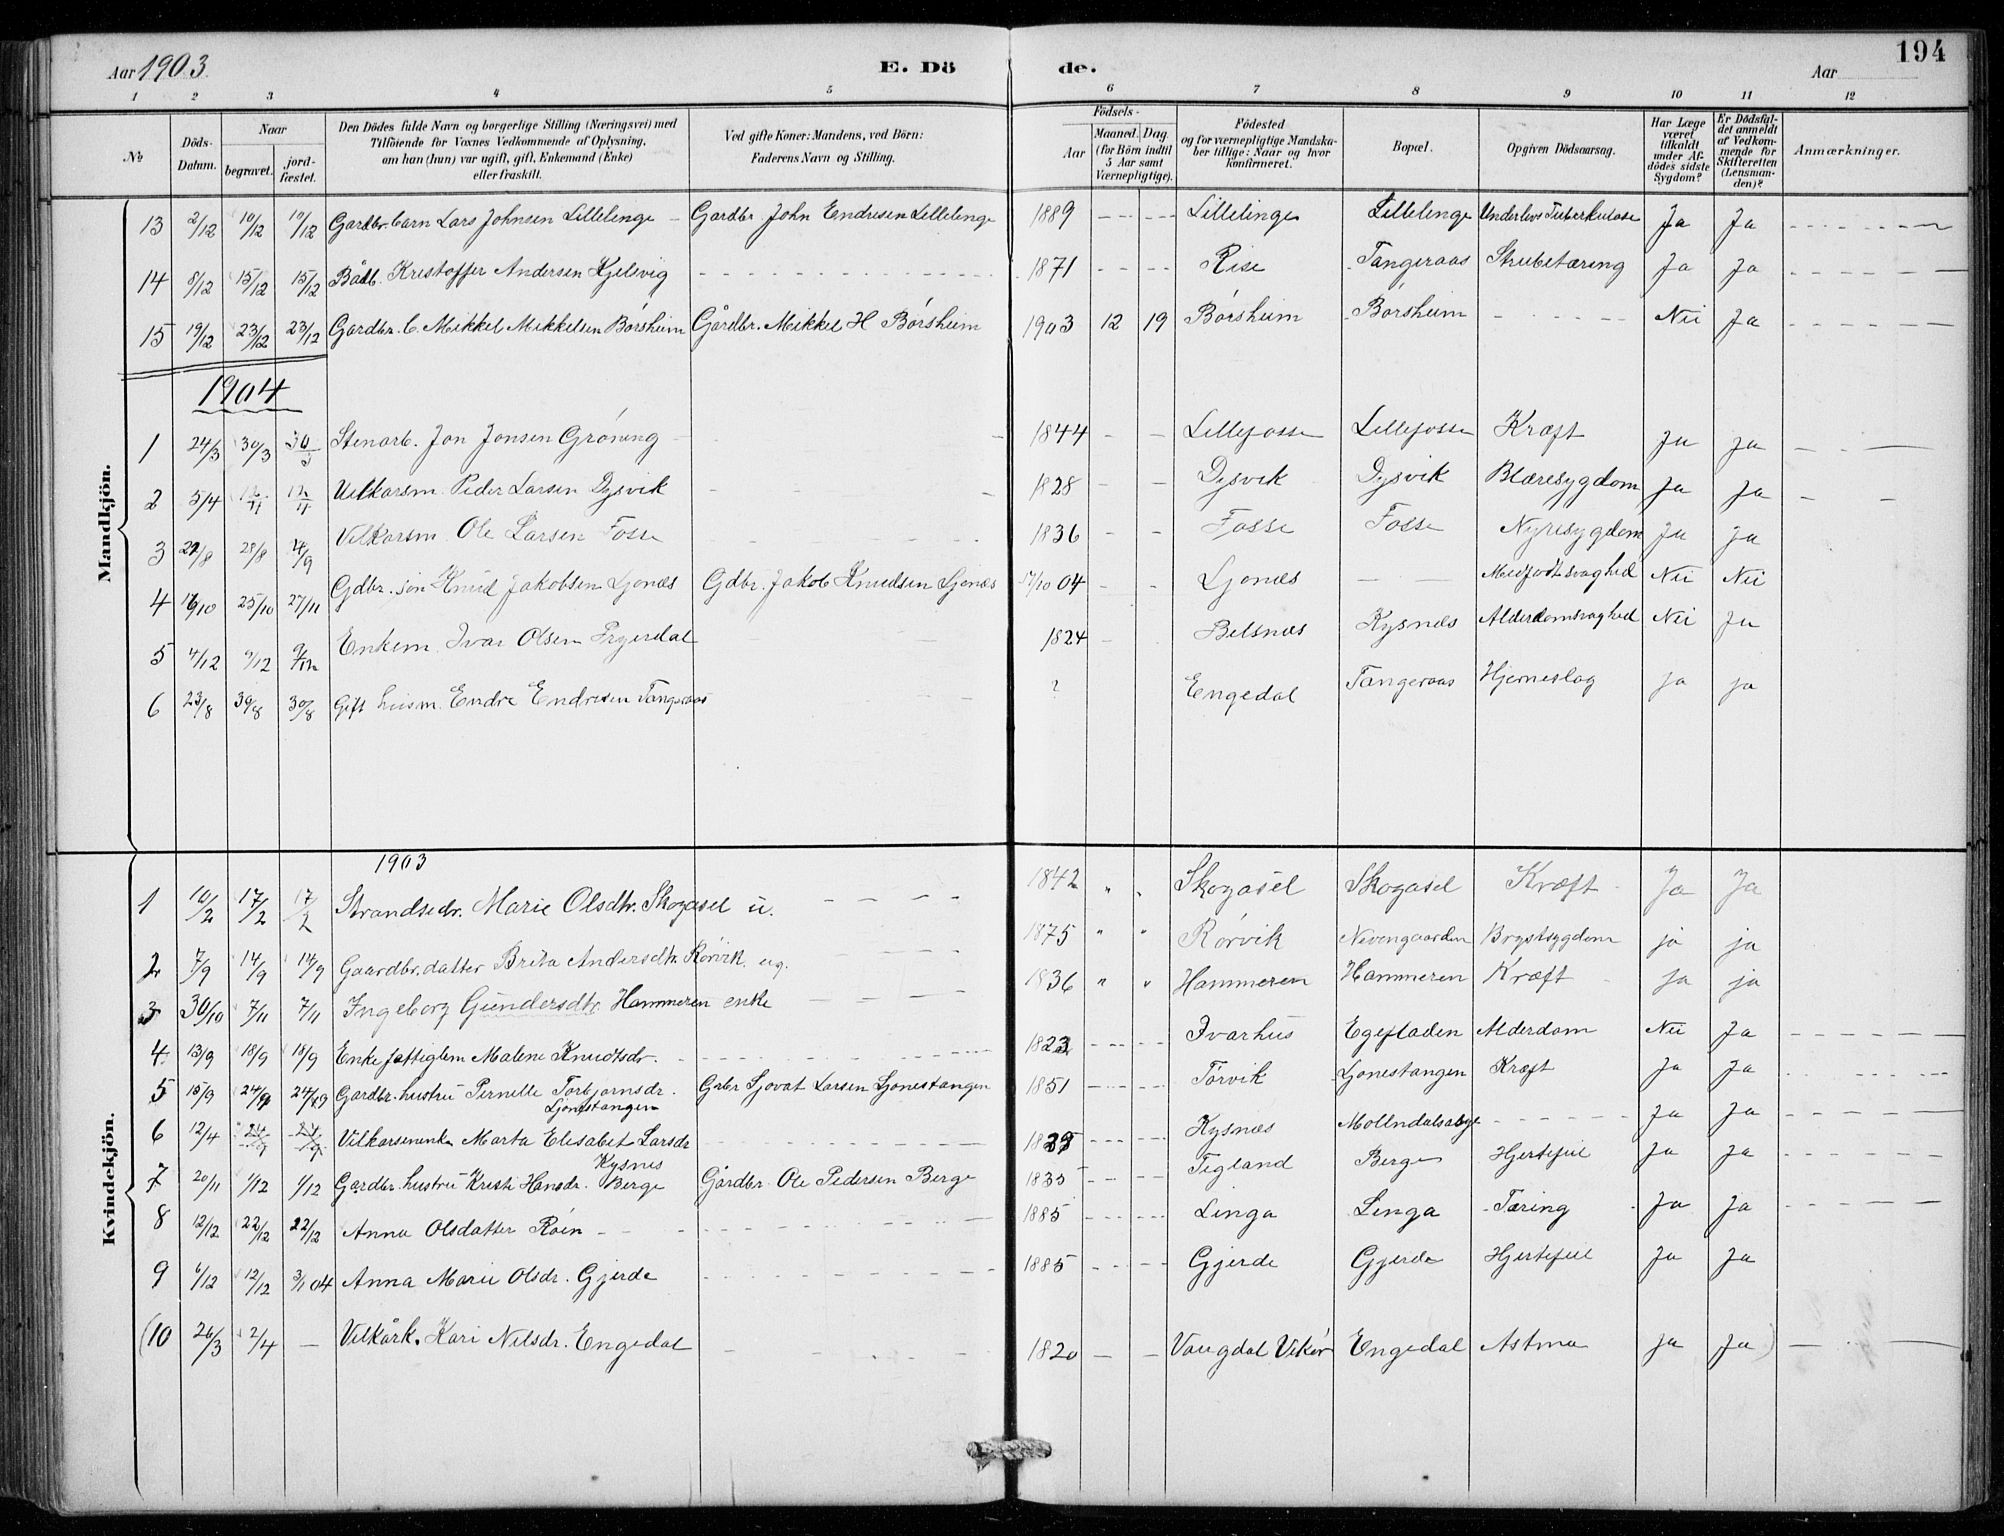 Aar 1903. E. Dö de. Aar 194
1 2 3 4 5 6 7 8 9 10 11 12
No Döds-Datum. Naar begravet. jord-fæstet. Den Dödes fulde Navn og borgerlige Stilling (Næringsvei) med Tilföiende for Voxnes Vedkommende af Oplysning, om han (hun) var ugift, gift, Enkemand (Enke) eller fraskilt. Ved gifte Koner: Mandens, ved Börn: Faderens Navn og Stilling. Födsels- Aar Maaned. Dag. (for Börn indtil 5 Aar samt Værnepligtige). Födested og for værnepligtige Mandskaber tillige: Naar og hvor konfirmeret. Bopæl. Opgiven Dödsaarsag. Har Læge været tilkaldt under Afdödes sidste Sygdom? Er Dödsfaldet anmeldt af Vedkommende for Skifteretten (Lensmanden)? Anmærkninger.
Mandkjön.
13 2/12 10/12 10/12 Gardbr. barn Lars Johnsen Lillelenge Gardbr. John Endresen Lillelenge 1889 Lillelinge Lillelenge Underlivs Tuberkulose Ja Ja
14 8/12 15/12 15/12 Bådb. Kristoffer Andersen Kjelsvig 1871 Rise Tangeraas Strubetæring Ja Ja
15 19/12 23/12 23/12 Gardbr. b. Mikkel Mikkelsen Börsheim Gårdbr. Mikkel H Börsheim 1903 12 19 Börsheim Börsheim Nei Ja
1904
1 24/3 30/3 30/3 Stenarb. Jon Jonsen Gröning 1844 Lillefosse Lillefosse Kræft Ja Ja
2 5/4 12/4 12/4 Vilkarsm. Peder Larsen Dysvik 1828 Dysvik Dysvik Blæresygdom Ja Ja
3 22/8 28/8 4/9 Vilkarsm. Ole Larsen Fosse 1836 Fosse Fosse Nyresygdom Ja Ja
4 25/10 27/11 Gdbr. sön Knud Jakobsen Ljonæs Gdbr. Jakob Knudsen Ljonæs 17/10 04 Ljonæs Medfødt svaghed Nei Nei
5 4/12 9/12 9/12 Enkem. Ivar Olsen 1824 Belsnæs Kysnæs Alderdomsvaghed Nei Ja
6 23/8 30/8 30/8 Gift husm. Endre Endresen Tangeraas ? Engedal Tangeraas Hjerneslag ja ja
Kvindekjön.
1903
1 10/2 17/2 17/2 Strandsedr. Marie Olsdtr. Skogasel u. 1842 " " Skogasel Skogasel Kræft Ja Ja
2 7/9 14/9 14/9 Gaardbr. datter Brita Andersdtr. Rörvik ug. 1875 " " Rörvik Nevengaarden Brystsygdom ja ja
3 30/10 7/11 7/11 Ingeborg Gundersdtr. Hammeren enke 1836 " " Hammeren Hammeren Kræft ja ja
4. 13/9 18/9 18/9 Enke fattiglem Malene Knudtsdr. 1823 Ivarhus Egefladen Alderdom Nei Ja
5 15/9 24/9 24/9 Gardbr. hustru Pernille Torbjørnsdr. Grbr Sjovat Larsen Ljonestangen 1851 Törvik Ljonestangen Kræft Ja Ja
Ljonestangen
6 12/4 Vilkarsenenke Marta Elisabet Larsdr Kysnæs Mollendalsabye Ja Ja
Kysnes
7 20/11 1/12 1/12 Gardbr. hustru Kristi Hansdr. Berge Gårdbr. Ole Pedersen Berge 1835 Tigland Berge Hjertefeil Ja Ja
8 12/12 22/12 22/12 Anna Olsdatter Röen 1885 Linga Linga Tæring Ja Ja
9 6/12 12/12 3/1 04 Anna Marie Olsdr. Gjerde 1885 Gjerde Gjerde Hjertefeil Ja Ja
(10 26/3 2/4 — Vilkårk. Kari Nilsdr. Engedal 1820 Vangdal Vikör Engedal Astma Ja Ja )